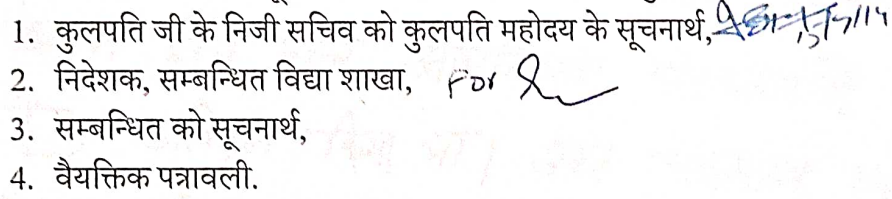 1. कुलपति जी के निजी सचिव को कुलपति महोदय के सूचनार्थ,
2. निदेशक, सम्बन्धित विद्या शाखा, For
3. सम्बन्धित को सूचनार्थ,
4. वैयक्तिक पत्रावली.